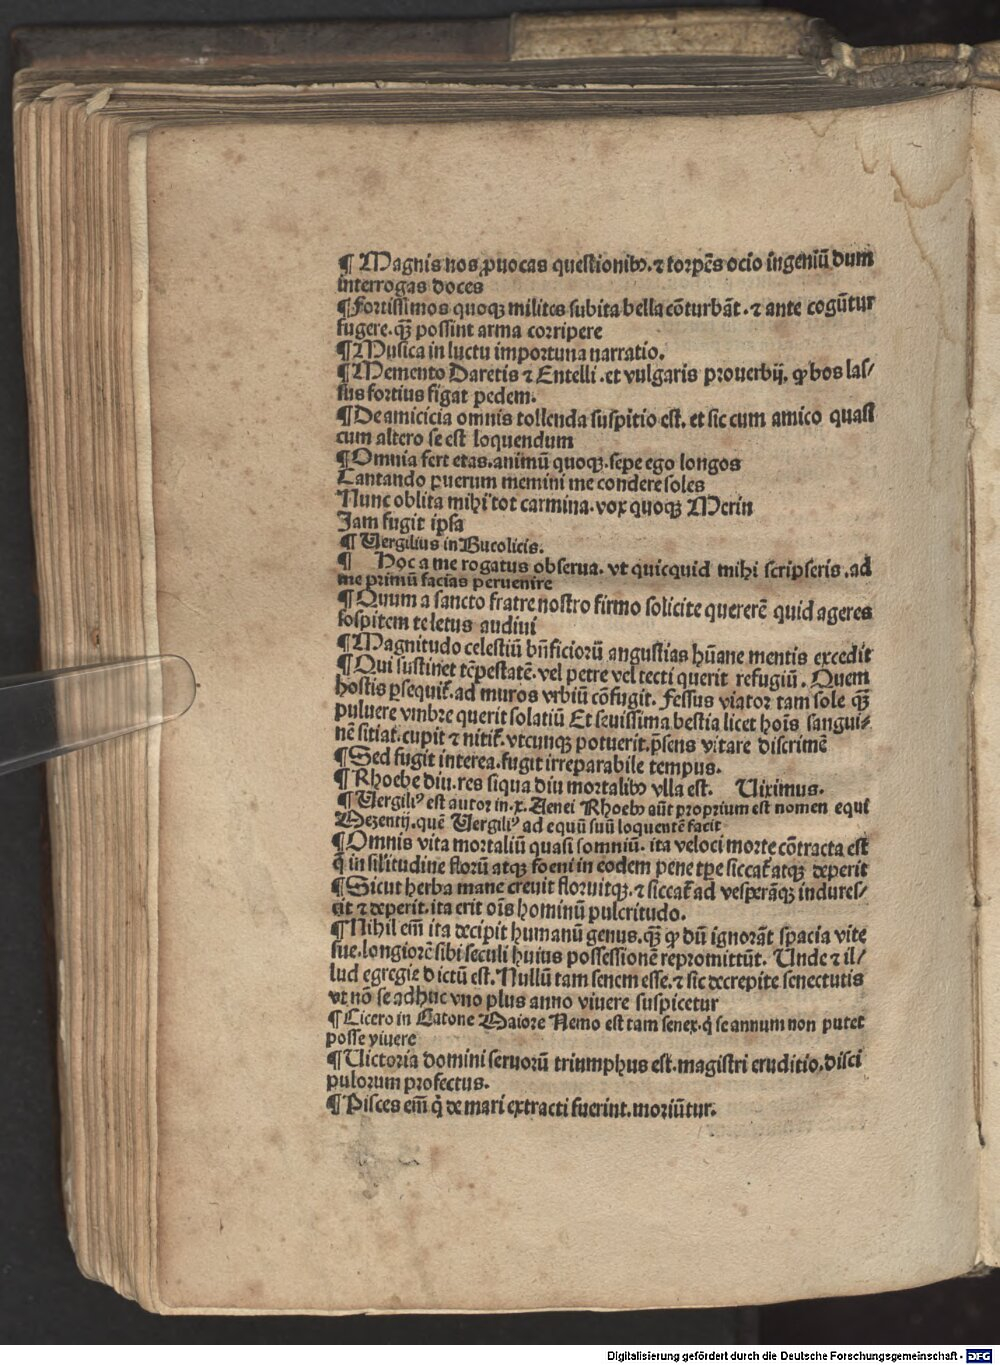 ¶ Magnis nos ꝓuocas questionibꝰ. ⁊ torpẽs ocio ingeniũ dum
interrogas doces
¶ Fortissimos quoqꝫ milites subita bella cõturbãt. ⁊ ante cogũtur
fugere. qꝫ̃ possint arma corripere
¶ Musica in luctu importuna narratio.
¶ Memento Daretis ⁊ Entelli. et vulgaris prouerbij, ꝙ bos las/
sus fortius figat pedem.
¶ De amicicia omnis tollenda suspitio est. et sic cum amico quasi
cum altero se est loquendum
¶ Omnia fert etas. animũ quoqꝫ. sepe ego longos
Cantando puerum memini me condere soles
Nunc oblita mihi tot carmina. vox quoqꝫ Merin
Jam fugit ipsa
¶ Vergilius in Bucolicis.
¶ Hoc a me rogatus obserua. vt quicquid mihi scripseris. ad
me primũ facias peruenire
¶ Quum a sancto fratre nostro firmo solicite quererẽ quid ageres
sospitem te letus audiui
¶ Magnitudo celestiũ bñficiorũ angustias hũane mentis excedit
¶ Qui sustinet tẽpestatẽ. vel petre vel tecti querit refugiũ. Quem
hostis ꝑsequit᷑. ad muros vrbiũ cõfugit. Fessus viator tam sole qꝫ̃
puluere vmbre querit solatiũ Et seuissima bestia licet hoĩs sangui/
nẽ sitiat. cupit ⁊ nitit᷑. vtcunqꝫ potuerit. p̃sens vitare discrimẽ
¶ Sed fugit interea. fugit irreparabile tempus.
¶ Rhoebe diu. res siqua diu mortalibꝰ vlla est. Viximus.
¶ Vergiliꝰ est autor in. x. Aenei Rhoebꝰ aũt proprium est nomen equi
Mezentij. quẽ Vergiliꝰ ad equũ suũ loquentẽ facit
¶ Omnis vita mortaliũ quasi somniũ. ita veloci morte cõtracta est
q̃ in silitudine florũ atqꝫ foeni in eodem pene tꝑe siccat᷑ atqꝫ deperit
¶ Sicut herba mane creuit floruitqꝫ. ⁊ siccat᷑ ad vesperãqꝫ indures/
cit ⁊ deperit. ita erit oĩs hominũ pulcritudo.
¶ Nihil em̃ ita decipit humanũ genus. qꝫ̃ ꝙ dũ ignorãt spacia vite
sue. longiorẽ sibi seculi huius possessionẽ repromittũt. Unde ⁊ il/
lud egregie dictũ est. Nullũ tam senem esse. ⁊ sic decrepite senectutis
vt nõ se adhuc vno plus anno viuere suspicetur
¶ Cicero in Catone Maiore Nemo est tam senex. q̇ se annum non putet
posse viuere
¶ Victoria domini seruorũ triumphus est. magistri eruditio. disci
pulorum profectus.
¶ Pisces em̃ q̇ de mari extracti fuerint. moriũtur.
Digitalisierung gefördert durch die Deutsche Forschungsgemeinschaft - DFG